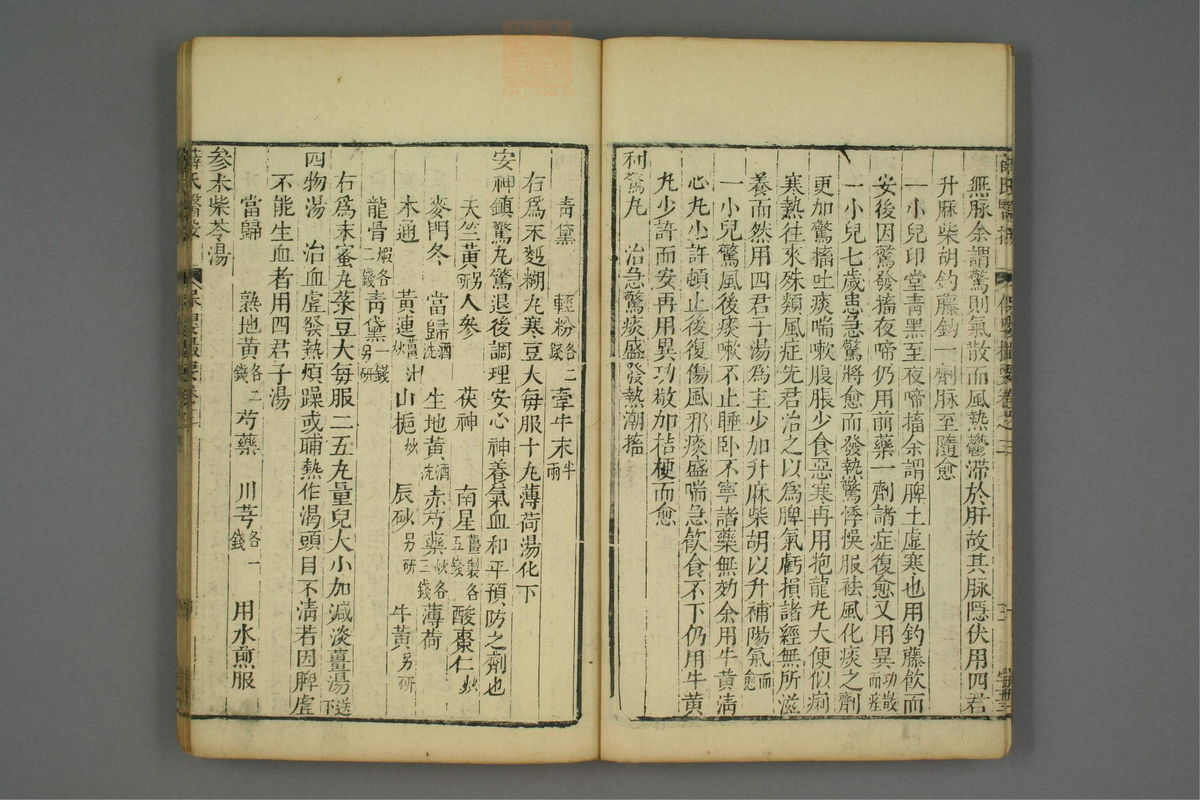 無脉余謂驚則氣散而風熱鬱滯於肝故其脉隱伏用四君
升麻柴胡釣藤鈎一劑脉至隨愈
一小兒印堂青黑至夜啼搐余謂脾土虛寒也用釣藤飲而
安後因驚發搐夜啼仍用前藥一劑諸症復愈又用異功散而痊
一小兒七歲患急驚將愈而發熱驚悸悞服祛風化痰之劑
更加驚搐吐痰喘嗽腹脹少食惡寒再用抱龍丸大便似痢
寒熱往來殊類風症先君治之以爲脾氣虧損諸經無所滋
養而然用四君子湯爲主少加升麻柴胡以升補陽氣而愈
一小兒驚風後痰嗽不止睡卧不寧諸藥無効余用牛黄淸
心丸少許頓止後復傷風邪痰盛喘急飲食不下仍用牛黄
丸少許而安再用異功散加桔梗而愈
利驚丸 治急驚痰盛發熱潮搐
青黛 輕粉各二錢 牽牛末半兩
右爲末麪糊丸寒豆大每服十丸薄荷湯化下
安神鎭驚丸驚退後調理安心神養氣血和平預防之劑也
天竺黄另研 人參 茯神 南星薑製各五錢 酸棗仁炒
麥門冬 當歸酒洗 生地黄酒洗 赤芍藥炒各三錢 薄荷
木通 黄連薑汁炒 山梔炒 辰砂另研 牛黄另研
龍骨煅各二錢 青黛一錢另研
右爲末蜜丸菉豆大每服三五丸量兒大小加減淡薑湯送下
四物湯 治血虛發熱煩躁或晡熱作渴頭目不淸若因脾虛
不能生血者用四君子湯
當歸 熟地黄各二錢 芍藥 川芎各一錢 用水煎服
參朮柴苓湯
薛氏醫按 保嬰撮要卷之三